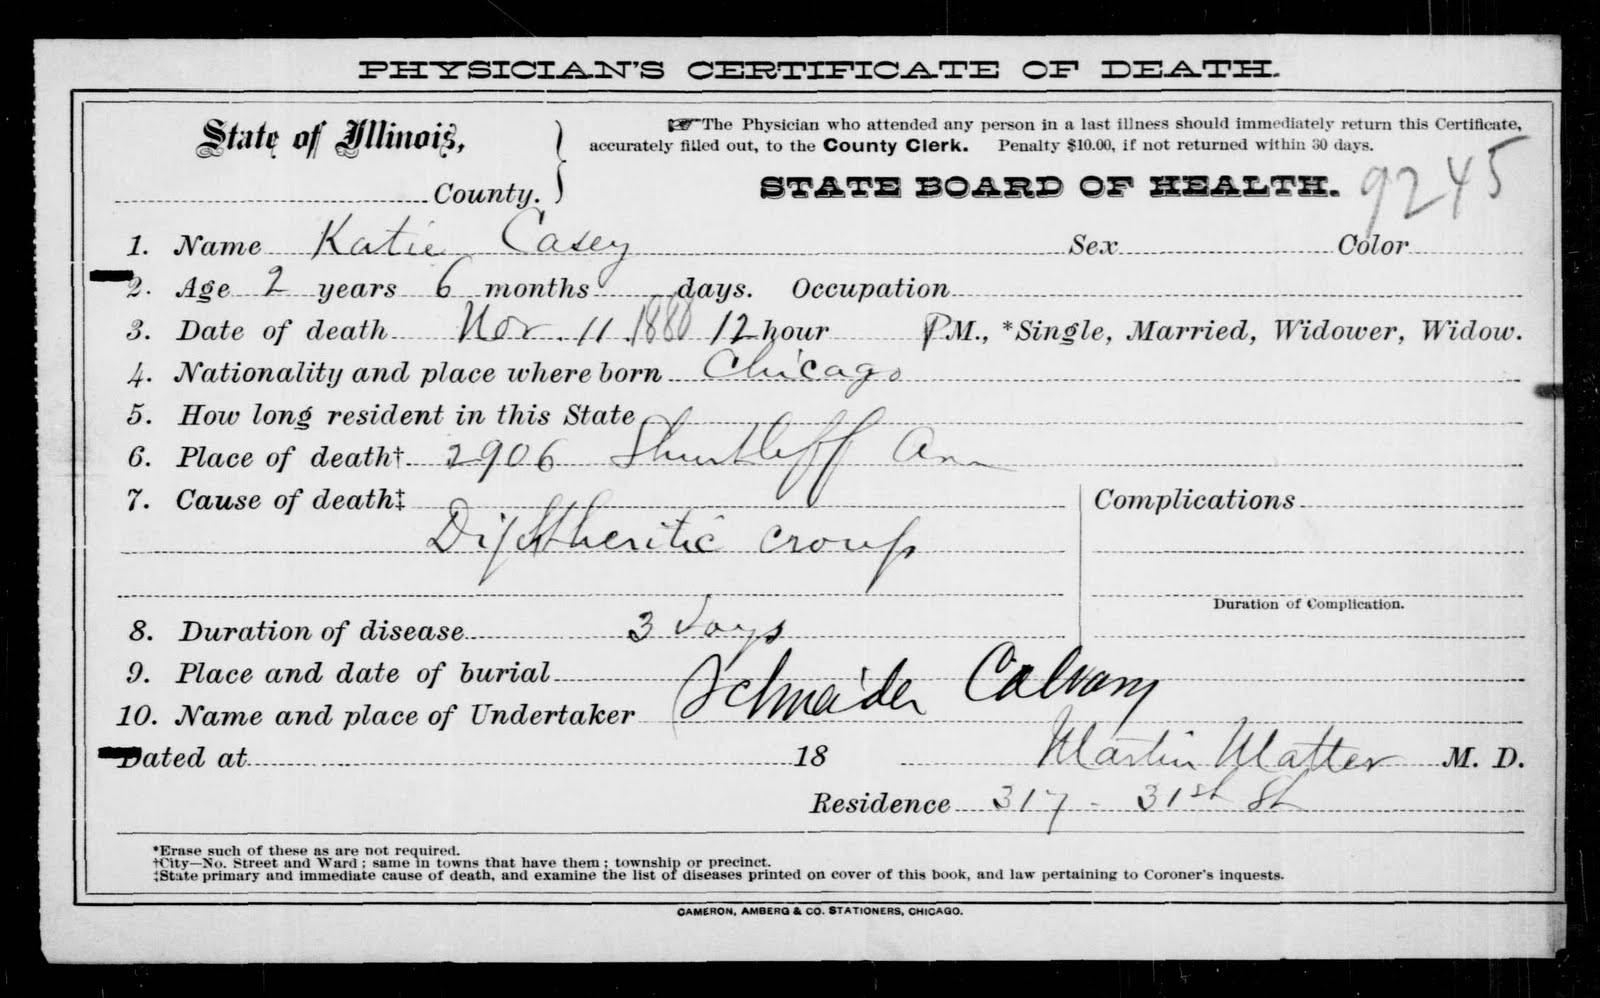 PHYSICIAN'S CERTIFICATE OF DEATH.
State of Illinois,
County.
The Physician who attended any person in a last illness should immediately return this Certificate,
accurately filled out, to the County Clerk. Penalty $10.00, if not returned within 30 days.
STATE BOARD OF HEALTH. 9245
1. Name Katie Casey Sex Color
2. Age 2 years 6 months days. Occupation
3. Date of death Nov. 11. 1880 12 hour P M., *Single, Married, Widower, Widow.
4. Nationality and place where born Chicago
5. How long resident in this State
6. Place of death† 2906 Shurtleff Ave
7. Cause of death‡ Complications
Diphtheritic croup
Duration of Complication.
8. Duration of disease 3 days
9. Place and date of burial Calvary
10. Name and place of Undertaker Schneider
Dated at 18 Martin Matter M. D.
Residence 317 - 31st St
*Erase such of these as are not required.
†City—No. Street and Ward; same in towns that have them; township or precinct.
‡State primary and immediate cause of death, and examine the list of diseases printed on cover of this book, and law pertaining to Coroner's inquests.
CAMERON, AMBERG & CO. STATIONERS, CHICAGO.